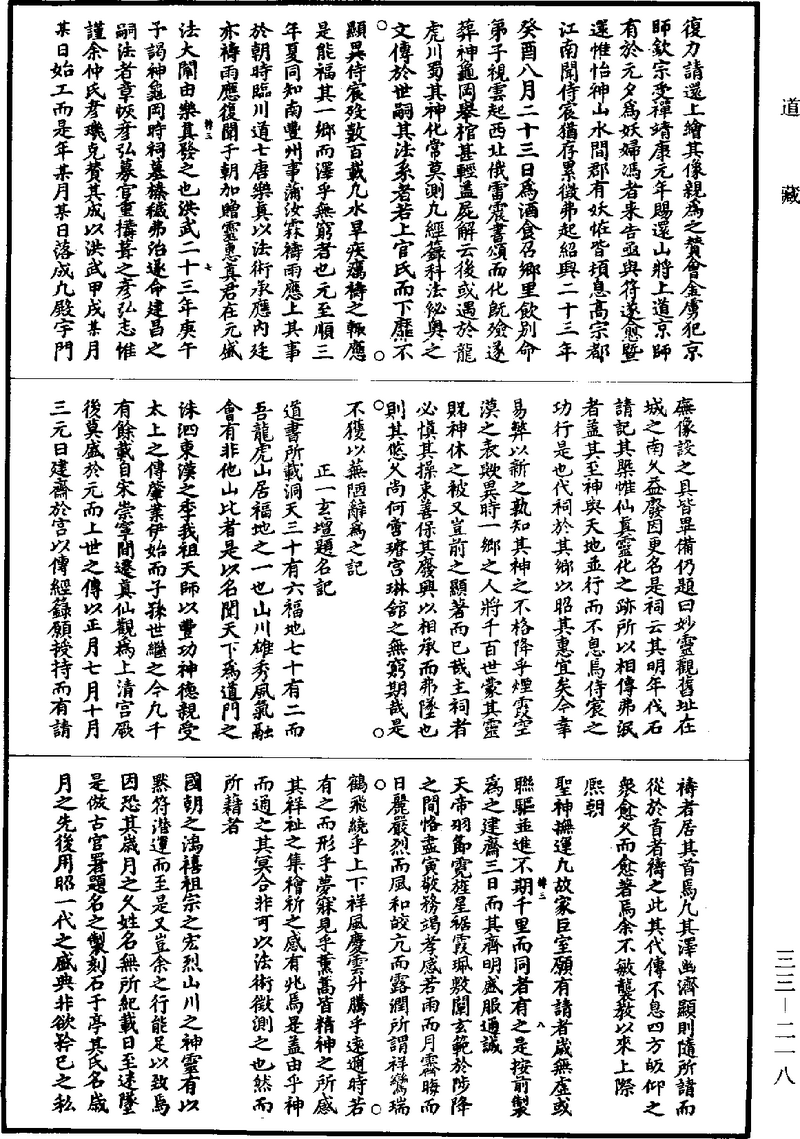 道藏
復力請還上繪其像親為之贊會金虜犯京
師欽宗受禪靖康元年賜還山將上道京師
有於元夕為妖婦馮者来告亟與符遂愈暨
還惟怡神山水間郡有妖怪皆頃息高宗都
江南聞侍宸猶存累徵弗起紹興二十三年
癸酉八月二十三日為酒食召鄉里飲別命
弟子視雲起西北俄雷震書頌而化既殮遂
葬神龜岡舉棺甚輕蓋屍解云後或遇於龍
虎川蜀其神化常莫測凡經籙科法秘奧之
文傳於世嗣其法系者若上官氏而下歷不
顯異侍宸歿數百載凡水旱疾癘禱之輒應
是能福其一鄉而澤乎無窮者也元至順三
年夏同知南豐州事蒲汝霖禱雨應上其事
於朝時臨川道士唐樂真以法術承應內廷
亦禱雨應復聞于朝加贈靈惠真君在元盛
法大闡由樂真發之也洪武二十三年庚午
予謁神龜岡時祠墓榛穢弗治遂命建昌之
嗣法者章恢彥弘募官重構葺之彥弘志惟
謹余仲氏彥璣克贊其成以洪武甲戌某月
某日始工而是年某月某日落成凡殿宇門
廡像設之具皆畢備仍題曰妙靈觀舊址在
城之南久益廢因更名是祠云其明年伐石
請記其槩惟仙真靈化之跡所以相傳弗泯
者蓋其至神與天地並行而不息焉侍宸之
功行是也代祠於其鄉以昭其惠宜矣今幸
易弊以新之孰知其神之不格降乎煙霞空
漠之表歟異時一鄉之人將千百世蒙其靈
貺神休之被又豈前之顯著而已哉主祠者
必慎其操束善保其廢興以相承而弗墜也
則其悠久尚何啻琳宮琳舘之無窮期哉是
不獲以蕪陋辭為之記
正一玄壇題名記
道書所載洞天三十有六福地七十有二而
吾龍虎山居福地之一也山川雄秀風氣融
會有非他山比者是以名聞天下為道門之
洙泗東漢之季我祖天師以豐功神德親受
太上之傳肇業伊始而子孫世繼之今九千
有餘載自宋崇寧間遷真仙觀為上清宮厥
後莫盛於元而上世之傳以正月七月十月
三元日建齋於宮以傳經籙願授持而有請
禱者居其首焉凡其澤幽濟顯則隨所諸而
從於首者禱之此其代傳不息四方皈仰之
衆愈久而愈著焉余不敏襲教以來上際
熈朝
聖神撫運凡故家巨室願有請者歲無虛或
聯驅並進不期千里而同者有之是按前製
為之建齋三日而其齊明盛服通誠
天帝羽節霓旌星裾霞珮敷闡玄範於陟降
之間恪盡寅敬務竭孝感若雨而月霽晦而
日麗嚴烈而風和皎亢而露潤所謂祥鸞瑞
鶴飛繞乎上下祥風慶雲升騰乎遠邇時若
有之而形乎夢寐見乎薰蒿皆精神之所感
其祥祉之集禬祈之感有兆焉是蓋由乎神
而通之其冥合非可以法術徵測之也然而
所藉者
國朝之鴻禧祖宗之宏烈山川之神靈有以
黙符潛運而至是又豈余之行能足以致焉
因恐其歲月之久姓名無所紀載日至遠墜
是倣古官署題名之製刻石于亭其氏名歲
月之先後用昭一代之盛典非欲矜已之私
三三—二一八